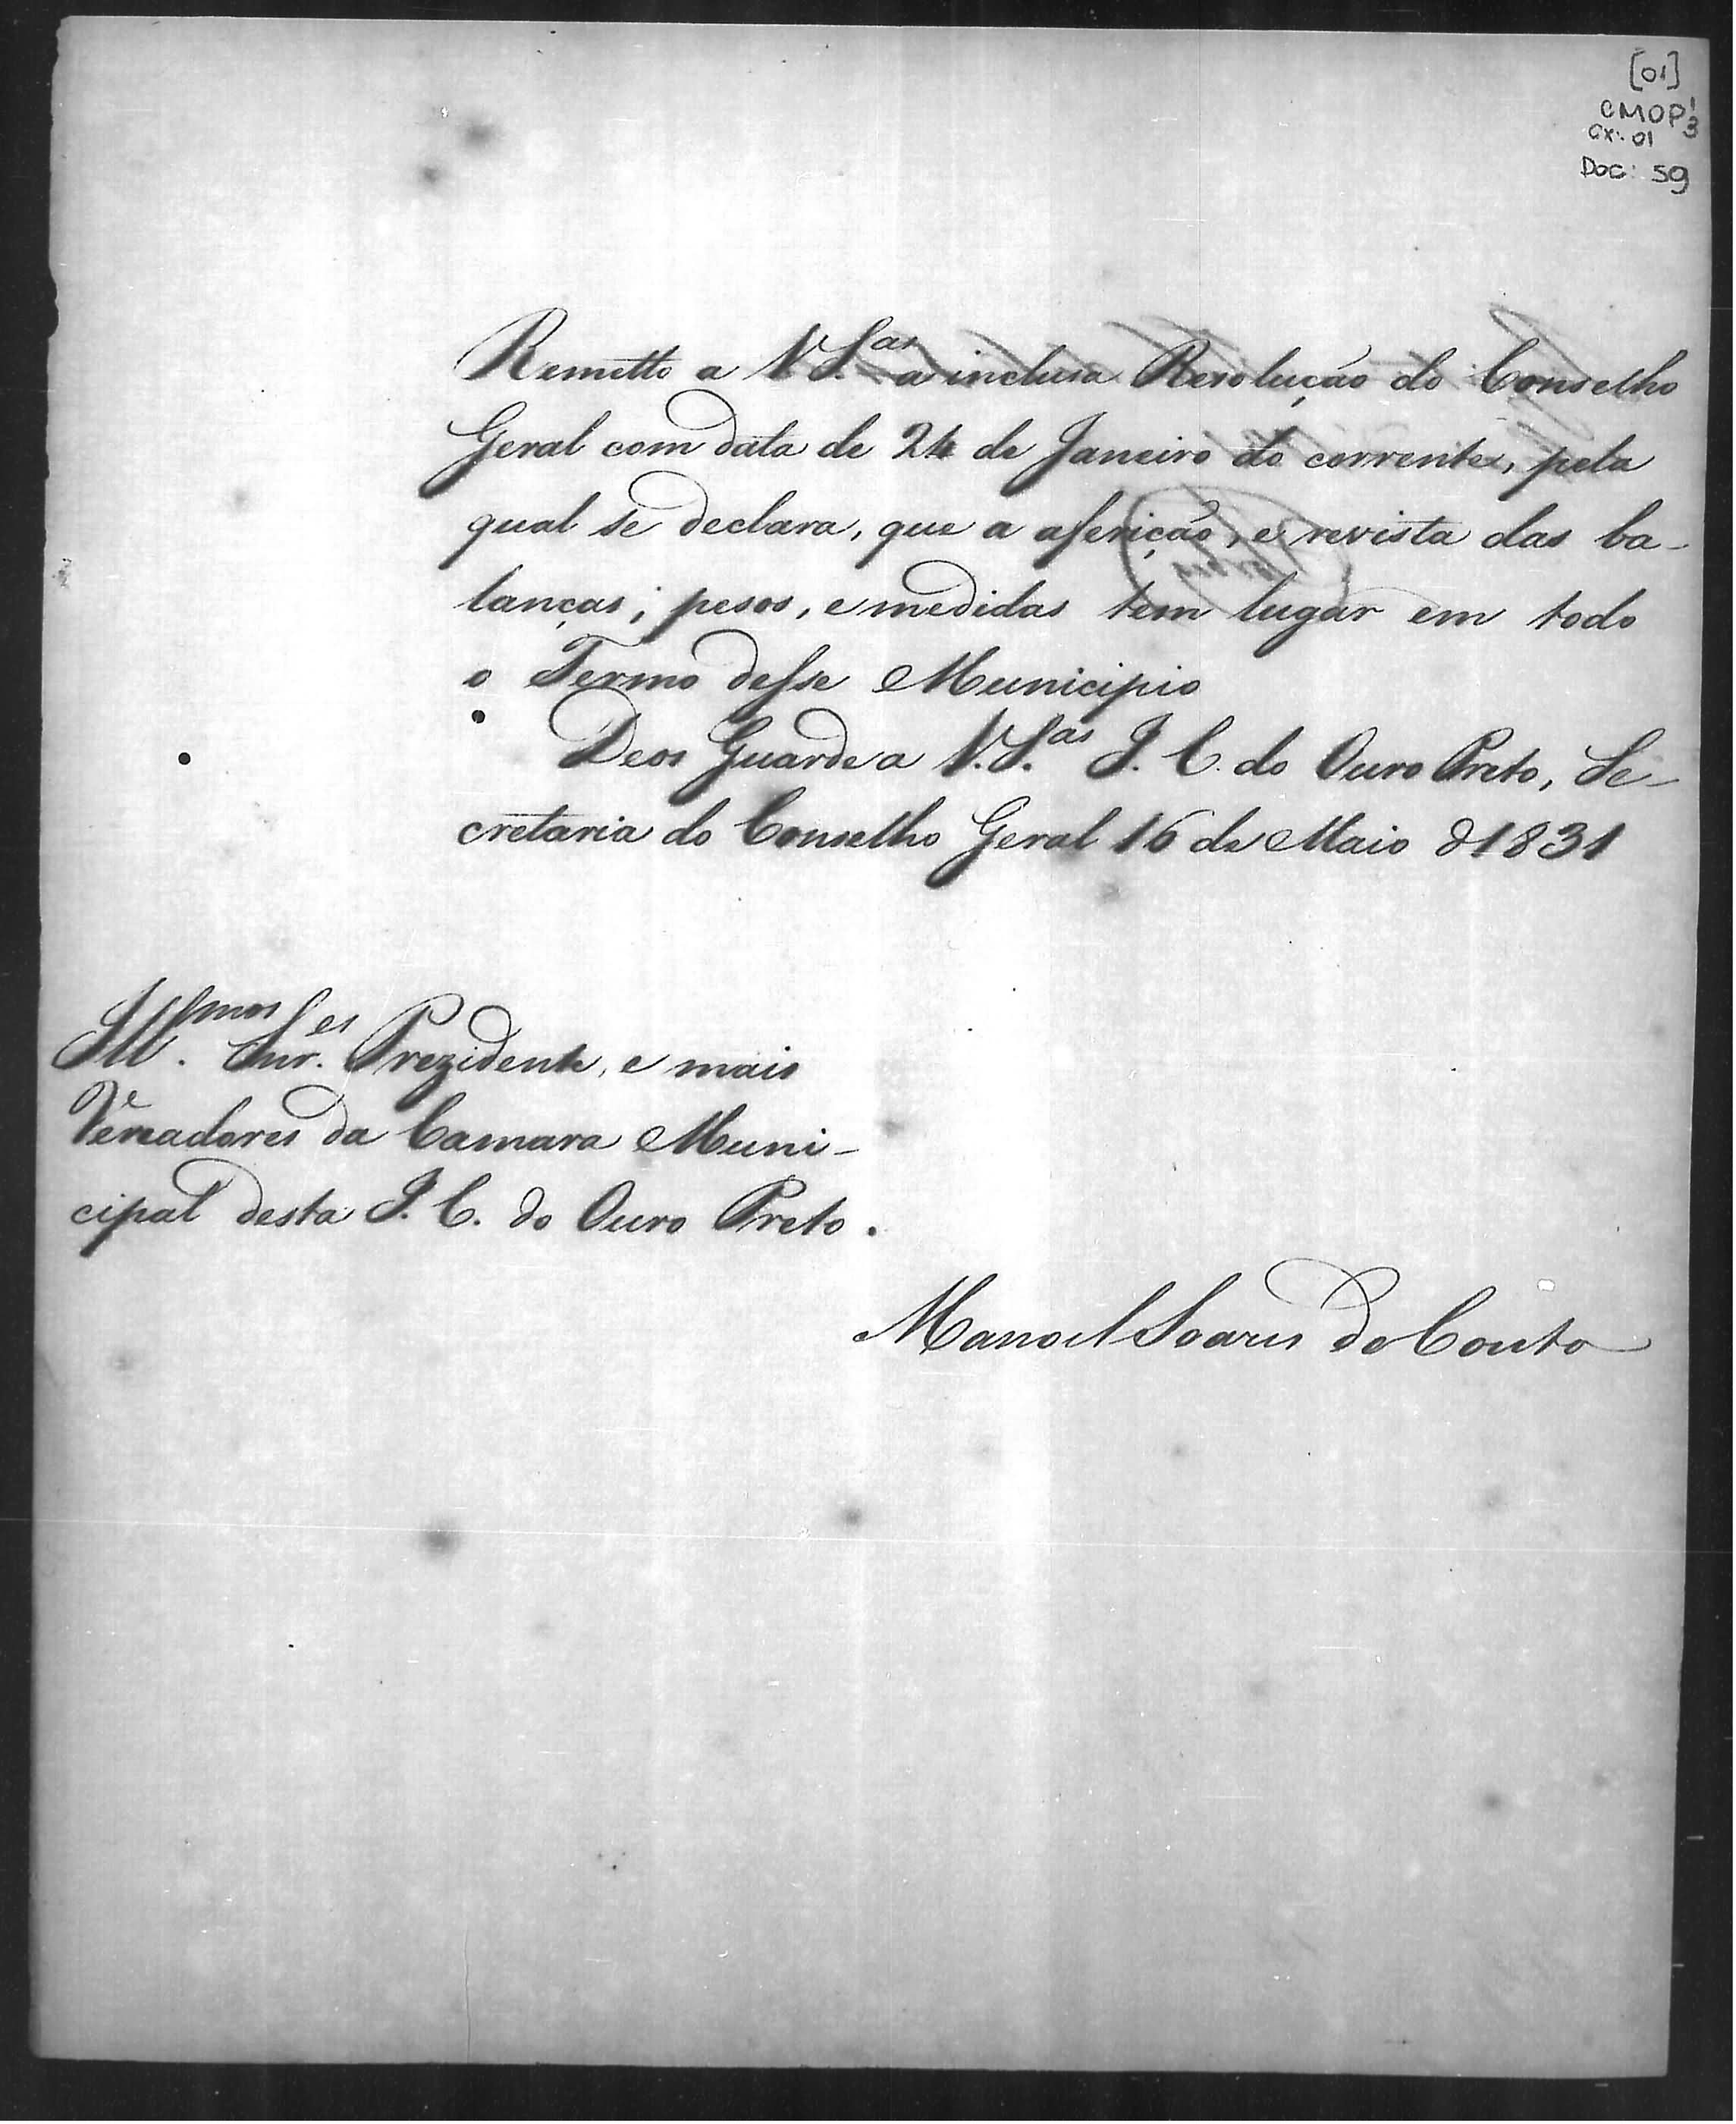 [01]
CMOP 1/3
CX: 01
Doc: 59
Remetto a V S.as a inclusa Resolução do Conselho
Geral com data de 24 de Janeiro do corrente, pela
qual se declara, que a aferição, e revista das ba-
lanças, pesos, e medidas tem lugar em todo
o Termo desse Municipio
Deos Guarde a V. S.as I. C. do Ouro Preto, Se-
cretaria do Conselho Geral 16 de Maio d 1831
Ill.mos Snr.es Prezidente, e mais
Vereadores da Camara Muni-
cipal desta I. C. do Ouro Preto.
Manoel Soares do Couto